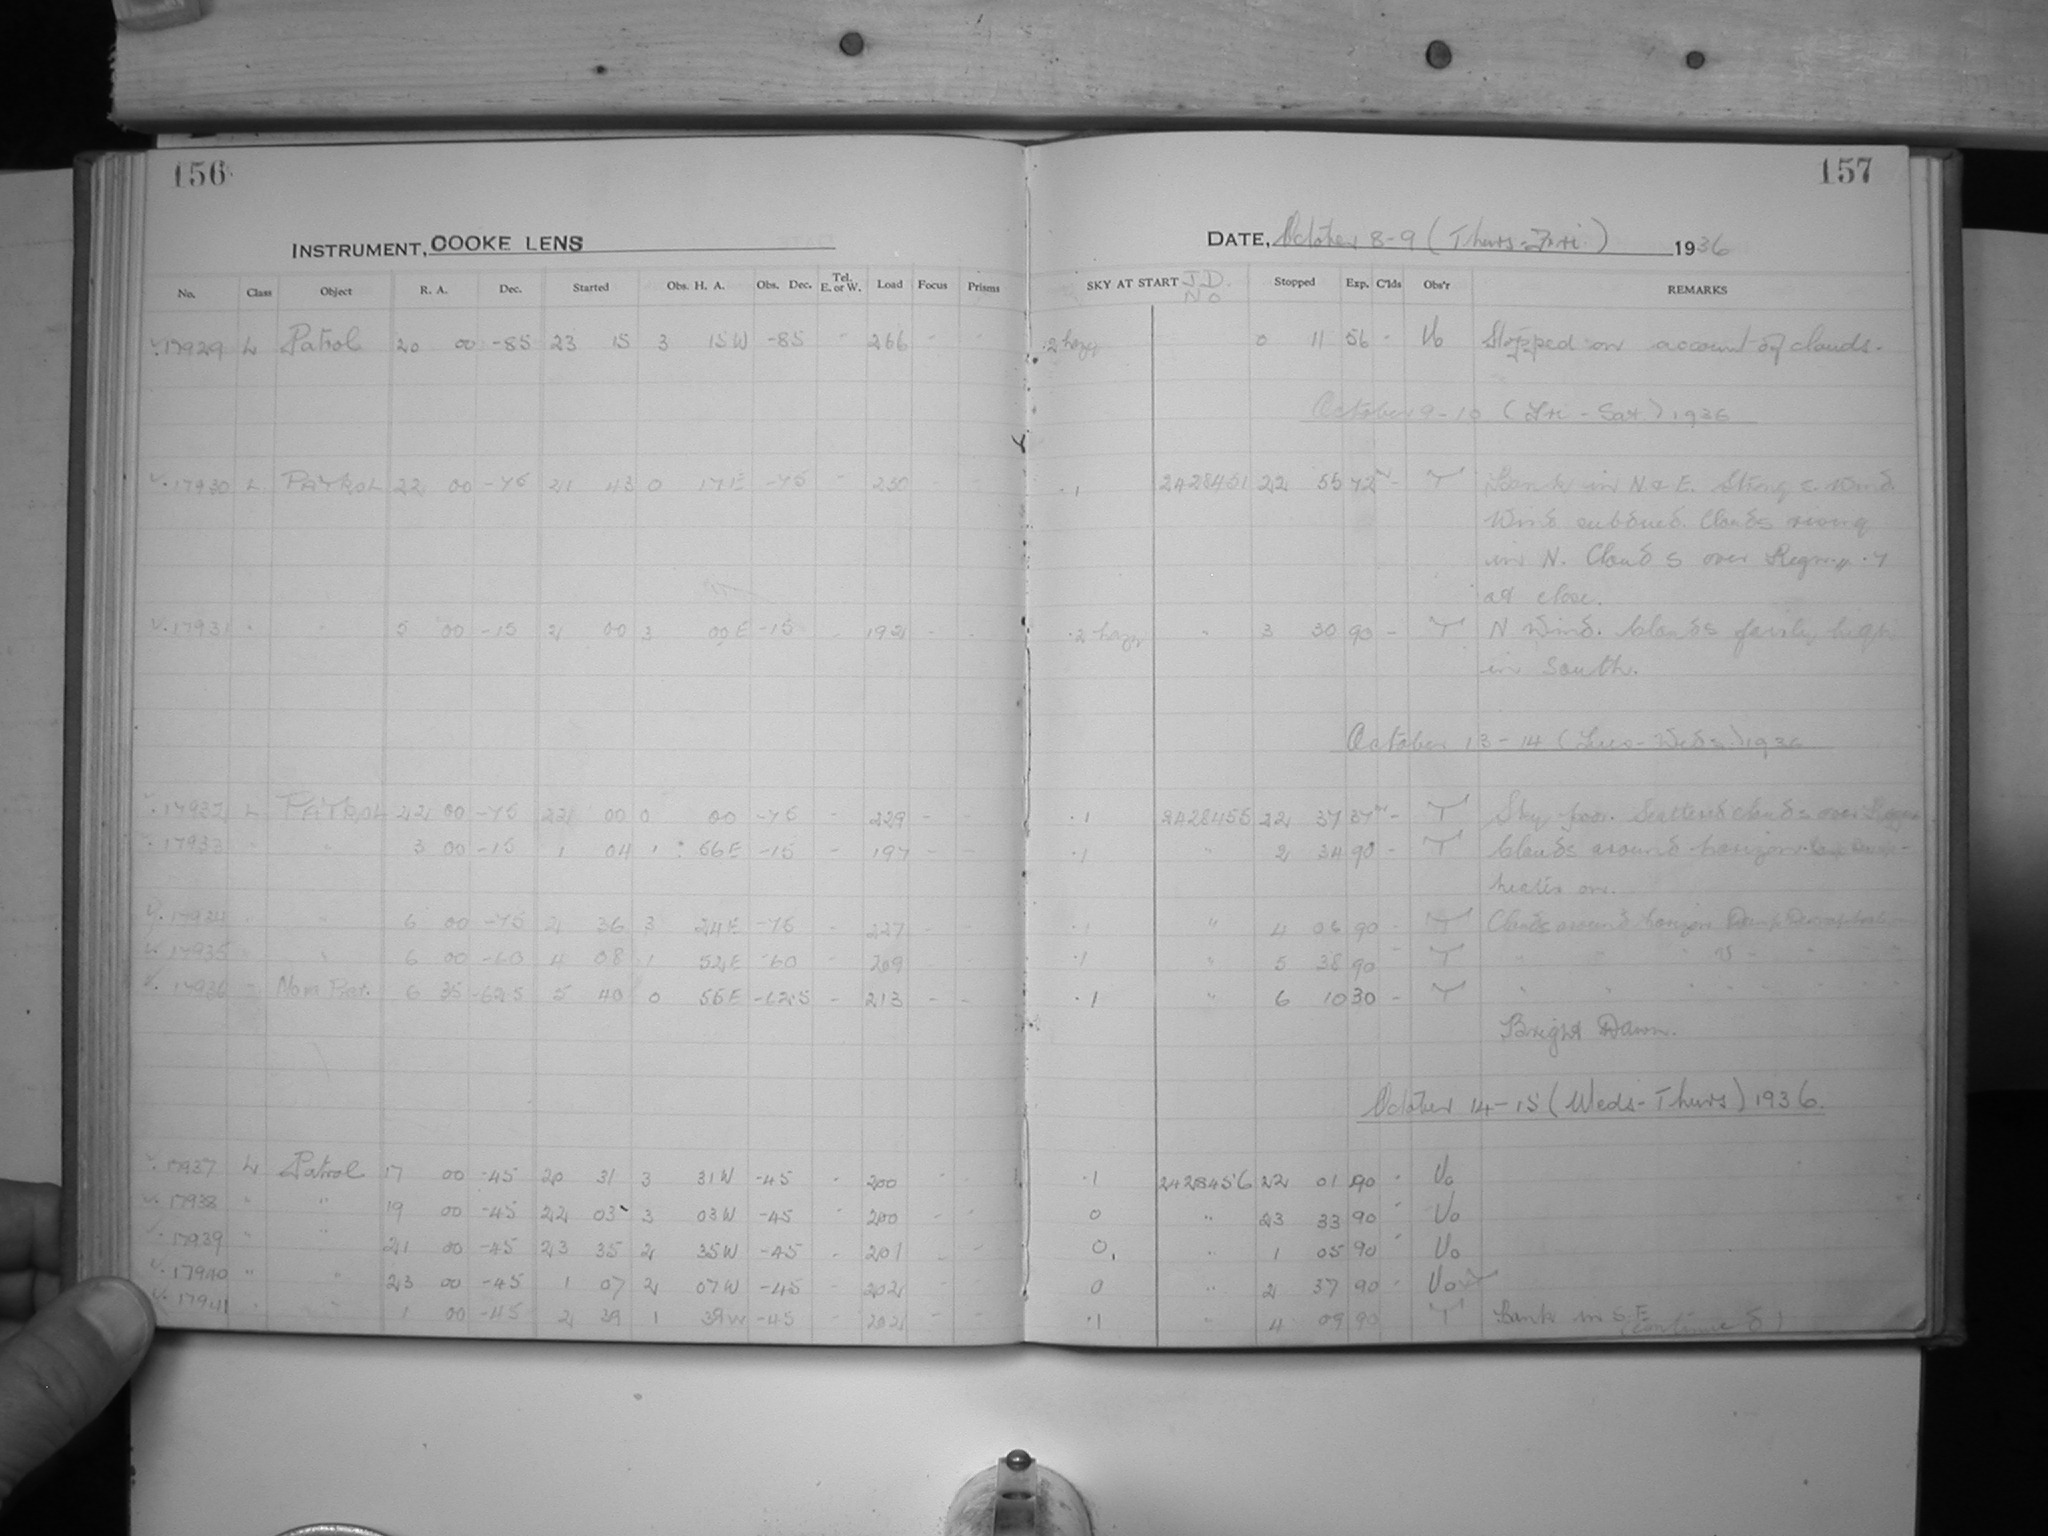 156
157
INSTRUMENT, COOKE LENS
DATE, October 8-9 (Thurs-Fri) 1936
No. Class Object R. A. Dec. Started Obs. H. A. Obs. Dec. Tel. E. or W. Load Focus Prisms SKY AT START J.D. No Stopped Exp. C'lds Obs'r REMARKS
17929 L Patrol 20 00 -85 23 15 3 15W -85 " 266 - - .2 hazy 0 11 56 - Vo Stopped on account of clouds.
October 9-10 (Fri - Sat.) 1936
17930 L PATROL 22 00 -75 21 43 0 17E -75 - 230 - - .1 2428451 22 55 72 - T Bank in N & E. Strong E. Wind.
Wind subdued. Clouds rising
in N. Clouds over Region
at close.
17931 " " 5 00 -15 2 00 3 00E -15 - 192 - - .2 hazy " 3 30 90 - T N Wind. Clouds fairly high
in South.
October 13-14 (Tues-Weds.) 1936
17932 L PATROL 22 00 -75 22 00 0 00 -75 - 229 - - .1 2428455 22 37 37 - T Sky poor. Scattered clouds over Region
17933 " " 3 00 -15 1 04 1 56E -15 - 197 - - .1 " 2 34 90 - T Clouds around horizon.
heater on.
17934 " " 6 00 -75 2 36 3 24E -75 - 227 - - .1 " 4 06 90 - T Clouds around horizon
17935 " " 6 00 -60 4 08 1 52E -60 - 209 - - .1 " 5 38 90 - T " " "
17936 " Nova Pict. 6 35 -62.5 5 40 0 55E -62.5 - 213 - - .1 " 6 10 30 - T " " "
Bright Dawn.
October 14-15 (Weds-Thurs) 1936.
17937 L Patrol 17 00 -45 20 31 3 31W -45 - 200 - - .1 2428456 22 01 90 - Vo
17938 " " 19 00 -45 22 03 3 03W -45 - 200 - - 0 " 23 33 90 - Vo
17939 " " 21 00 -45 23 35 2 35W -45 - 201 - - 0 " 1 05 90 - Vo
17940 " " 23 00 -45 1 07 2 07W -45 - 202 - - 0 " 2 37 90 - Vo T
17941 " " 1 00 -45 2 39 1 39W -45 - 202 - - .1 " 4 09 90 T Bank in S.E.
(Continued)